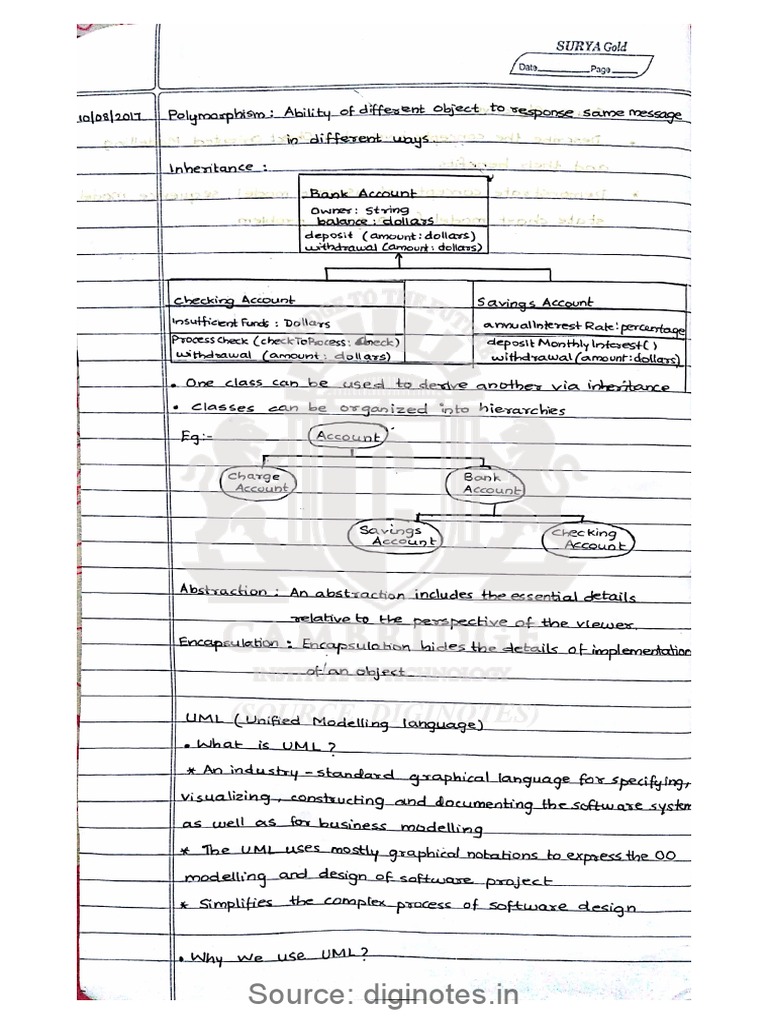 SURYA Gold
Date______Page____
10/08/2017 Polymorphism : Ability of different object to response same message
in different ways.
Inheritance :
Bank Account
Owner : String
balance : dollars
deposit (amount : dollars)
withdrawal (amount : dollars)
Checking Account
Insufficient Funds : Dollars
Process Check (check To Process : Check)
withdrawal (amount : dollars)
Savings Account
annual Interest Rate : percentage
deposit Monthly Interest ( )
withdrawal (amount : dollars)
• One class can be used to derive another via inheritance
• Classes can be organized into hierarchies
Eg :-
Account
Charge
Account
Bank
Account
Savings
Account
Checking
Account
Abstraction : An abstraction includes the essential details
relative to the perspective of the viewer.
Encapsulation : Encapsulation hides the details of implementation
of an object
CAMBRIDGE
INSTITUTE OF TECHNOLOGY
(SOURCE DIGINOTES)
UML ( Unified Modelling language)
• What is UML ?
* An industry - standard graphical language for specifying,
visualizing, constructing and documenting the software system
as well as for business modelling
* The UML uses mostly graphical notations to express the OO
modelling and design of software project
* Simplifies the complex process of software design
• Why we use UML ?
Source: diginotes.in